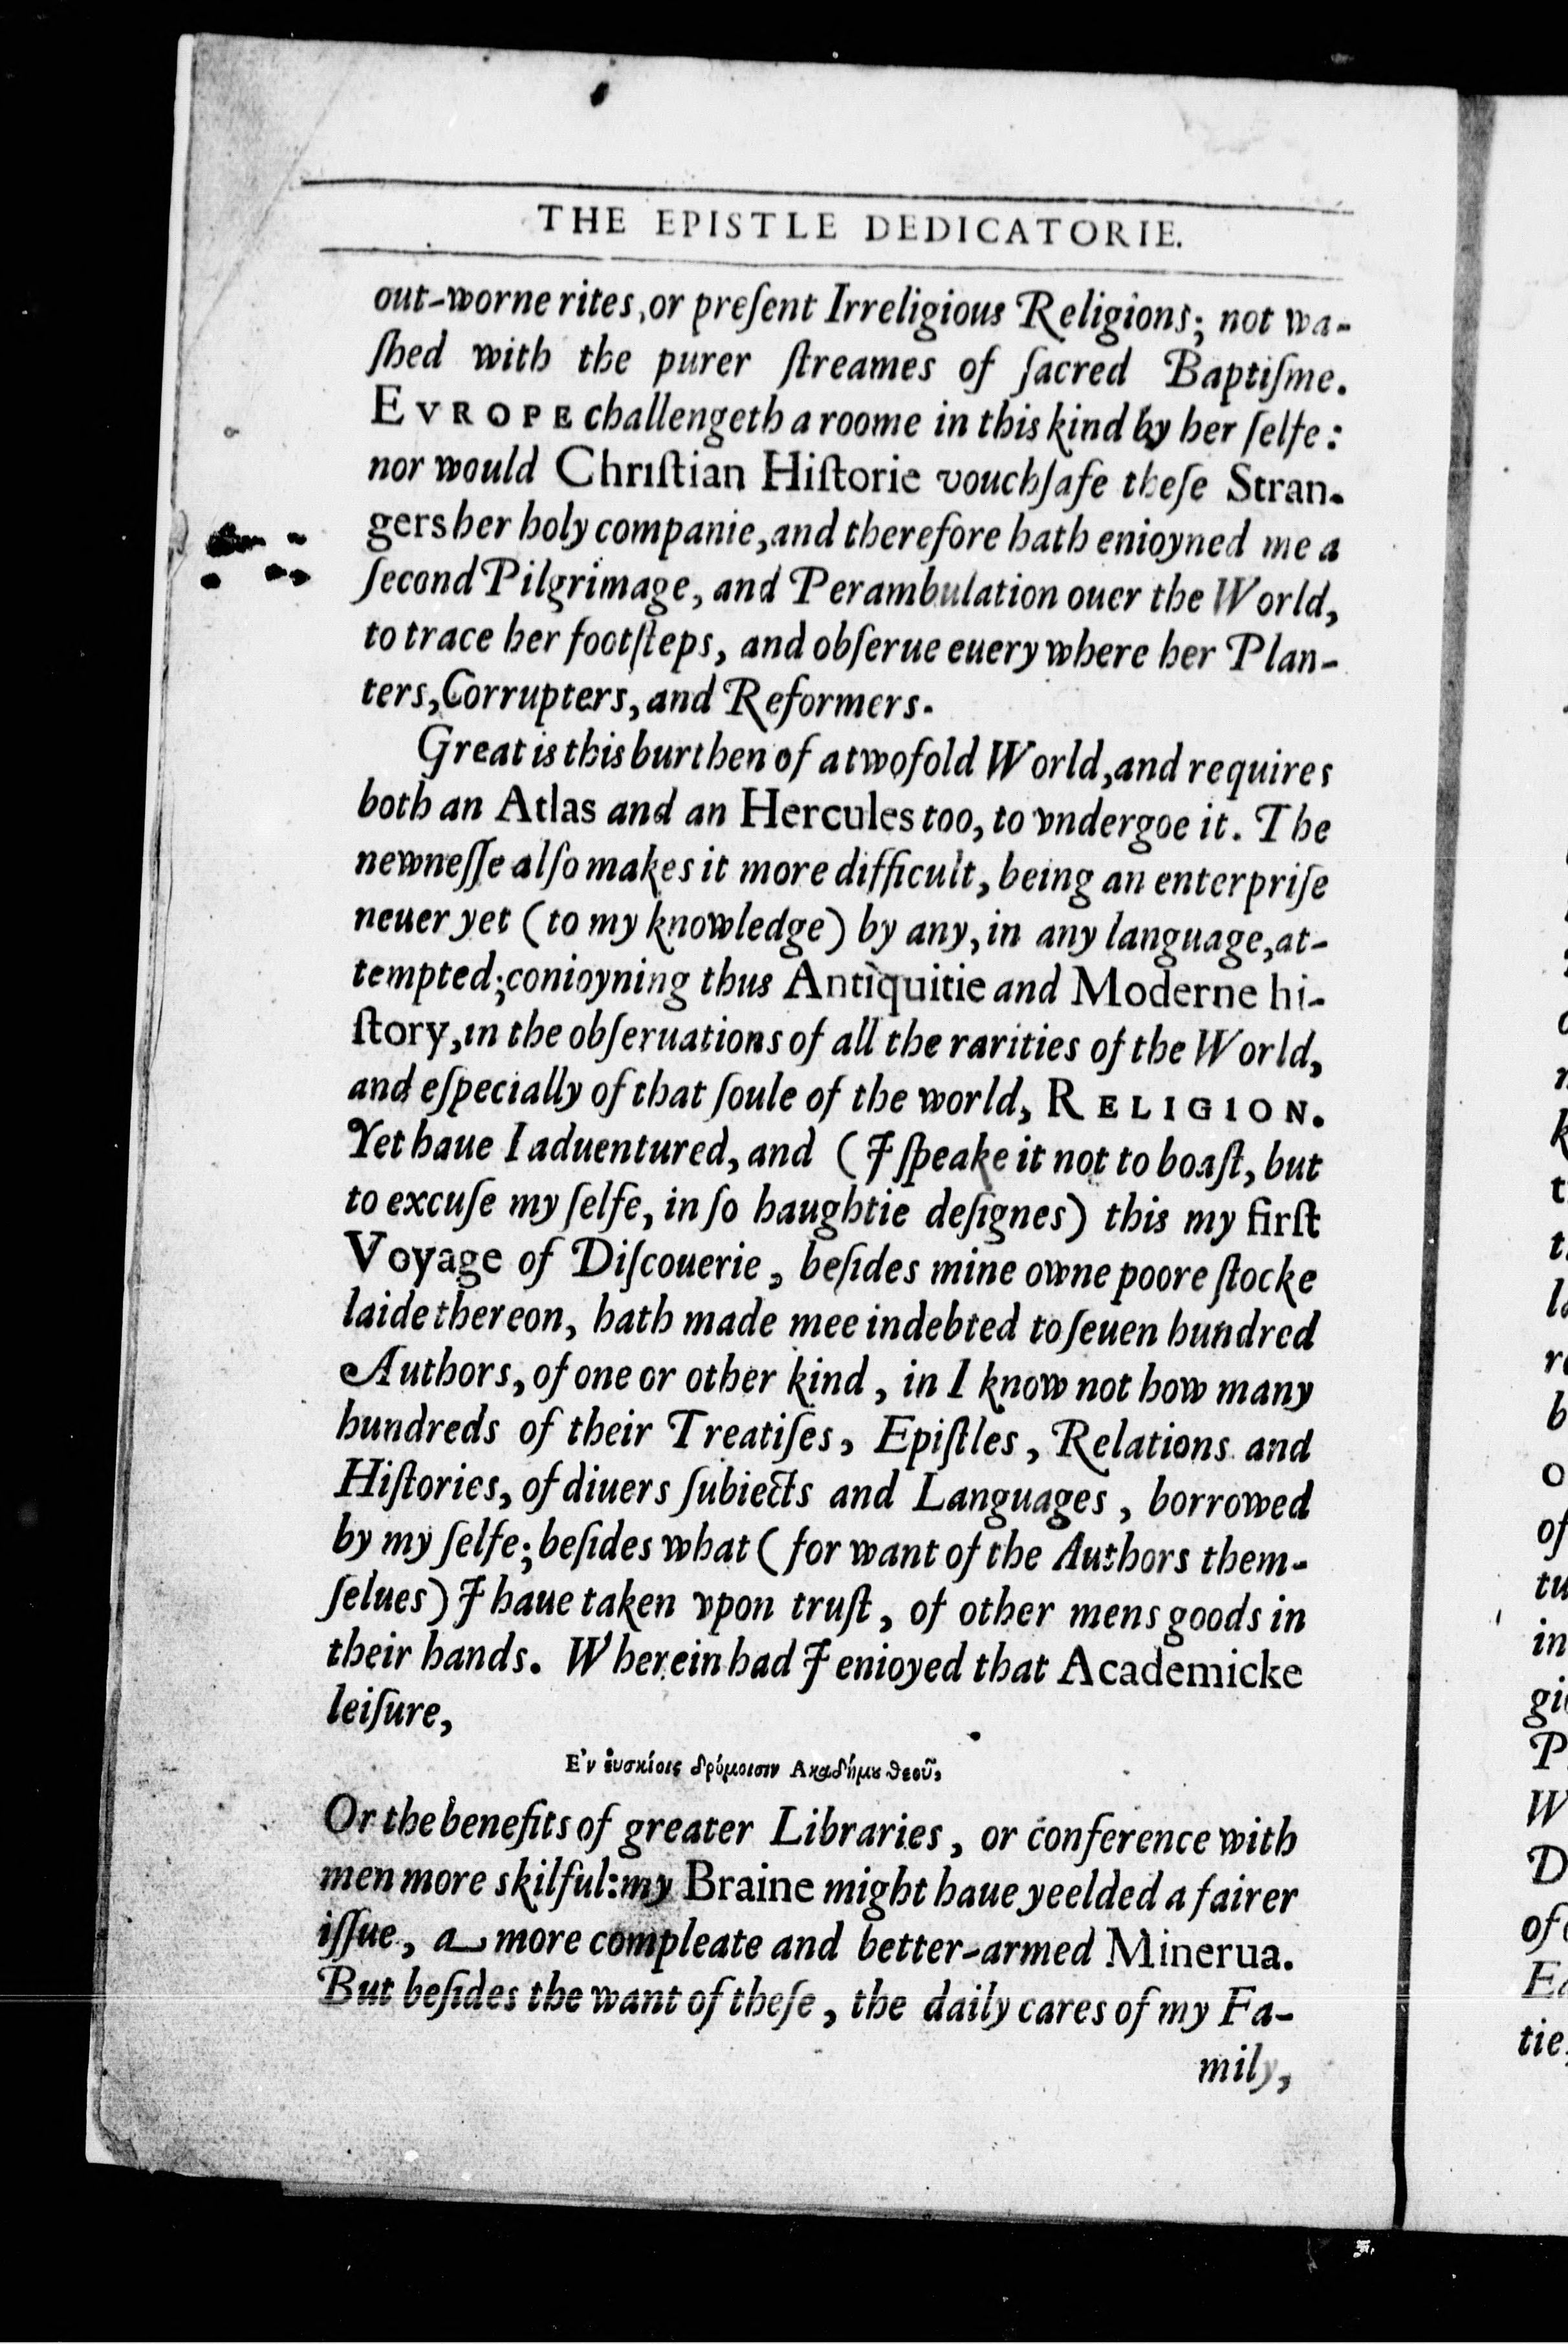 THE EPISTLE DEDICATORIE.
out-worne rites, or preſent Irreligious Religions; not wa-
ſhed with the purer ſtreames of ſacred Baptiſme.
EVROPE challengeth a roome in this kind by her ſelfe:
nor would Chriſtian Hiſtorie vouchſafe theſe Stran-
gers her holy companie, and therefore hath enioyned me a
ſecond Pilgrimage, and Perambulation ouer the World,
to trace her footſteps, and obſerue euery where her Plan-
ters, Corrupters, and Reformers.
Great is this burthen of a twofold World, and requires
both an Atlas and an Hercules too, to vndergoe it. The
newneſſe alſo makes it more difficult, being an enterpriſe
neuer yet (to my knowledge) by any, in any language, at-
tempted; conioyning thus Antiquitie and Moderne hi-
ſtory, in the obſeruations of all the rarities of the World,
and eſpecially of that ſoule of the world, RELIGION.
Yet haue I aduentured, and (I ſpeake it not to boaſt, but
to excuſe my ſelfe, in ſo haughtie deſignes) this my firſt
Voyage of Diſcouerie, beſides mine owne poore ſtocke
laide thereon, hath made mee indebted to ſeuen hundred
Authors, of one or other kind, in I know not how many
hundreds of their Treatiſes, Epiſtles, Relations and
Hiſtories, of diuers ſubiects and Languages, borrowed
by my ſelfe; beſides what (for want of the Authors them-
ſelues) I haue taken vpon truſt, of other mens goods in
their hands. Wherein had I enioyed that Academicke
leiſure,
Ε᾿ν ἐυσκίοις δρόμοισιν Ακαδήμȣ θεοῦ,
Or the benefits of greater Libraries, or conference with
men more skilful: my Braine might haue yeelded a fairer
iſſue, a more compleate and better-armed Minerua.
But beſides the want of theſe, the daily cares of my Fa-
mily,